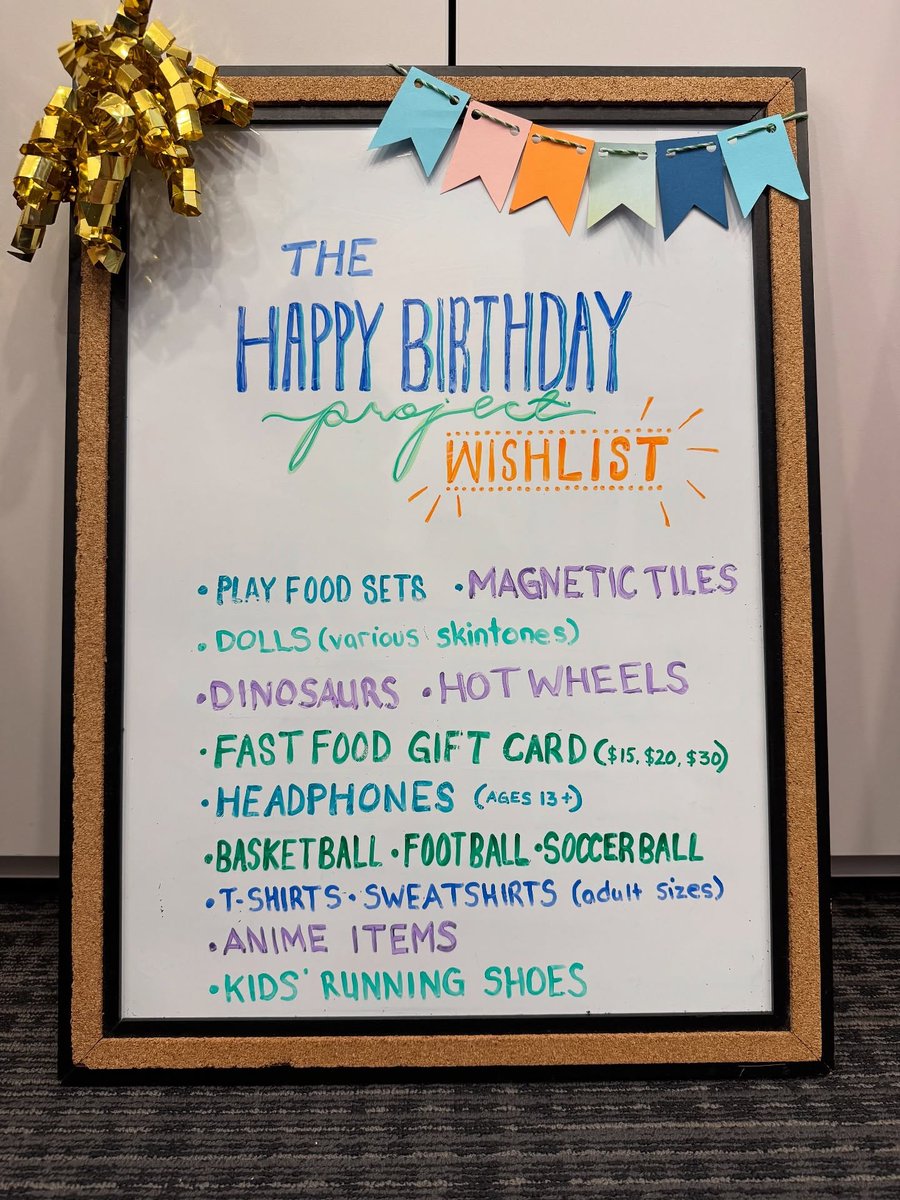 THE
HAPPY BIRTHDAY
project
WISHLIST
• PLAY FOOD SETS • MAGNETIC TILES
• DOLLS (various skintones)
• DINOSAURS • HOT WHEELS
• FAST FOOD GIFT CARD ($15, $20, $30)
• HEADPHONES (AGES 13+)
• BASKETBALL • FOOTBALL • SOCCER BALL
• T-SHIRTS • SWEATSHIRTS (adult sizes)
• ANIME ITEMS
• KIDS' RUNNING SHOES